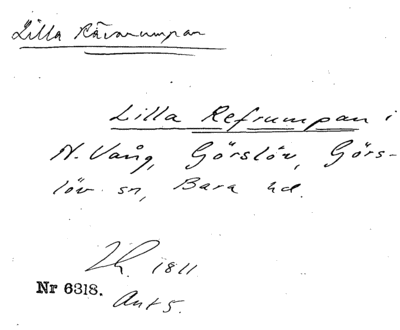 Lilla Rävarumpan
Lilla Refrumpan i
N. Vång, Görslöv, Görs-
löv sn, Bara hd.
1811
Nr 6318.
Ant 5.